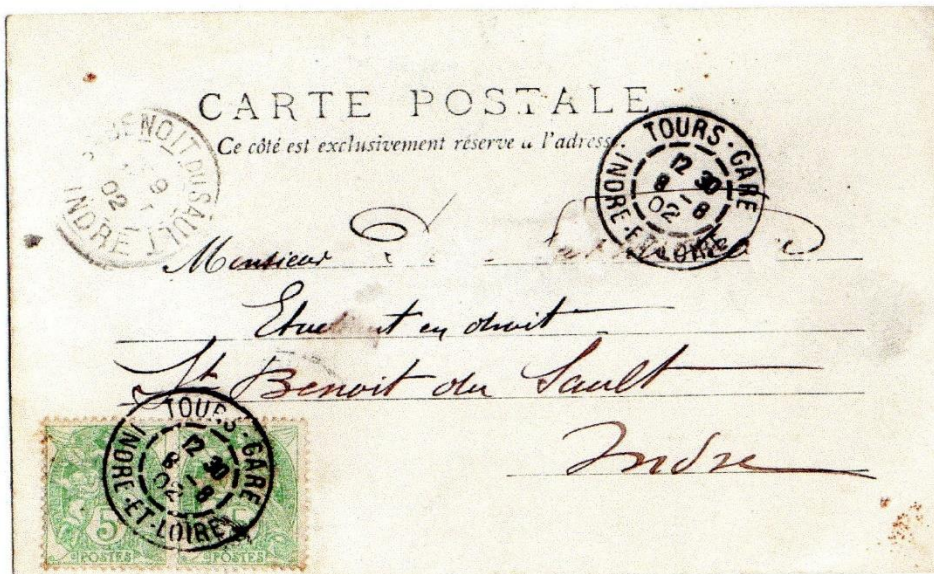 CARTE POSTALE
Ce côté est exclusivement réservé à l'adresse
BENOIT DU SAULT
9
02
INDRE
TOURS-GARE
12 30
8 - 8
02
INDRE-ET-LOIRE
Monsieur
Etudiant en droit
St Benoit du Sault
Indre
TOURS-GARE
12 30
8 - 8
02
INDRE-ET-LOIRE
5 5
POSTES POSTES